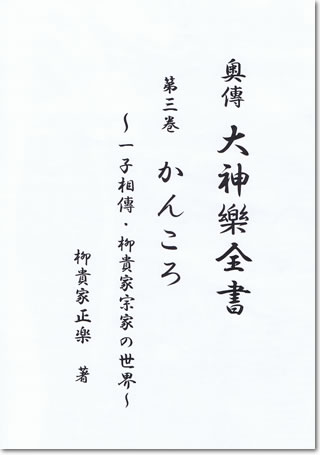 奥傳 大神樂全書
第三巻 かんころ
~一子相傳・柳貴家宗家の世界~
柳貴家正楽 著